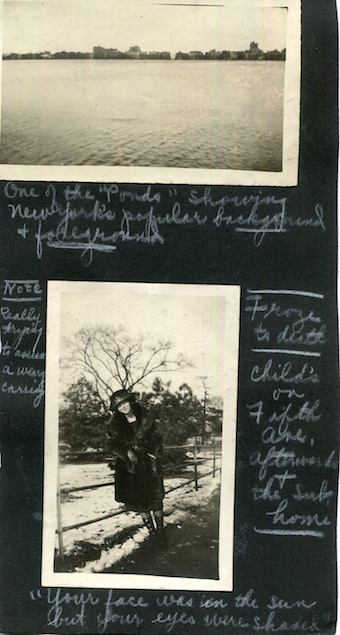 One of the "Ponds" showing
New York's popular background
+ foreground
Note
Really
trying
to assume
a weary
carriage
Froze
to death
Child's
on
Fifth
Ave.
afterwards
+
the Sub.
home
"Your face was in the sun
but your eyes were shaded"